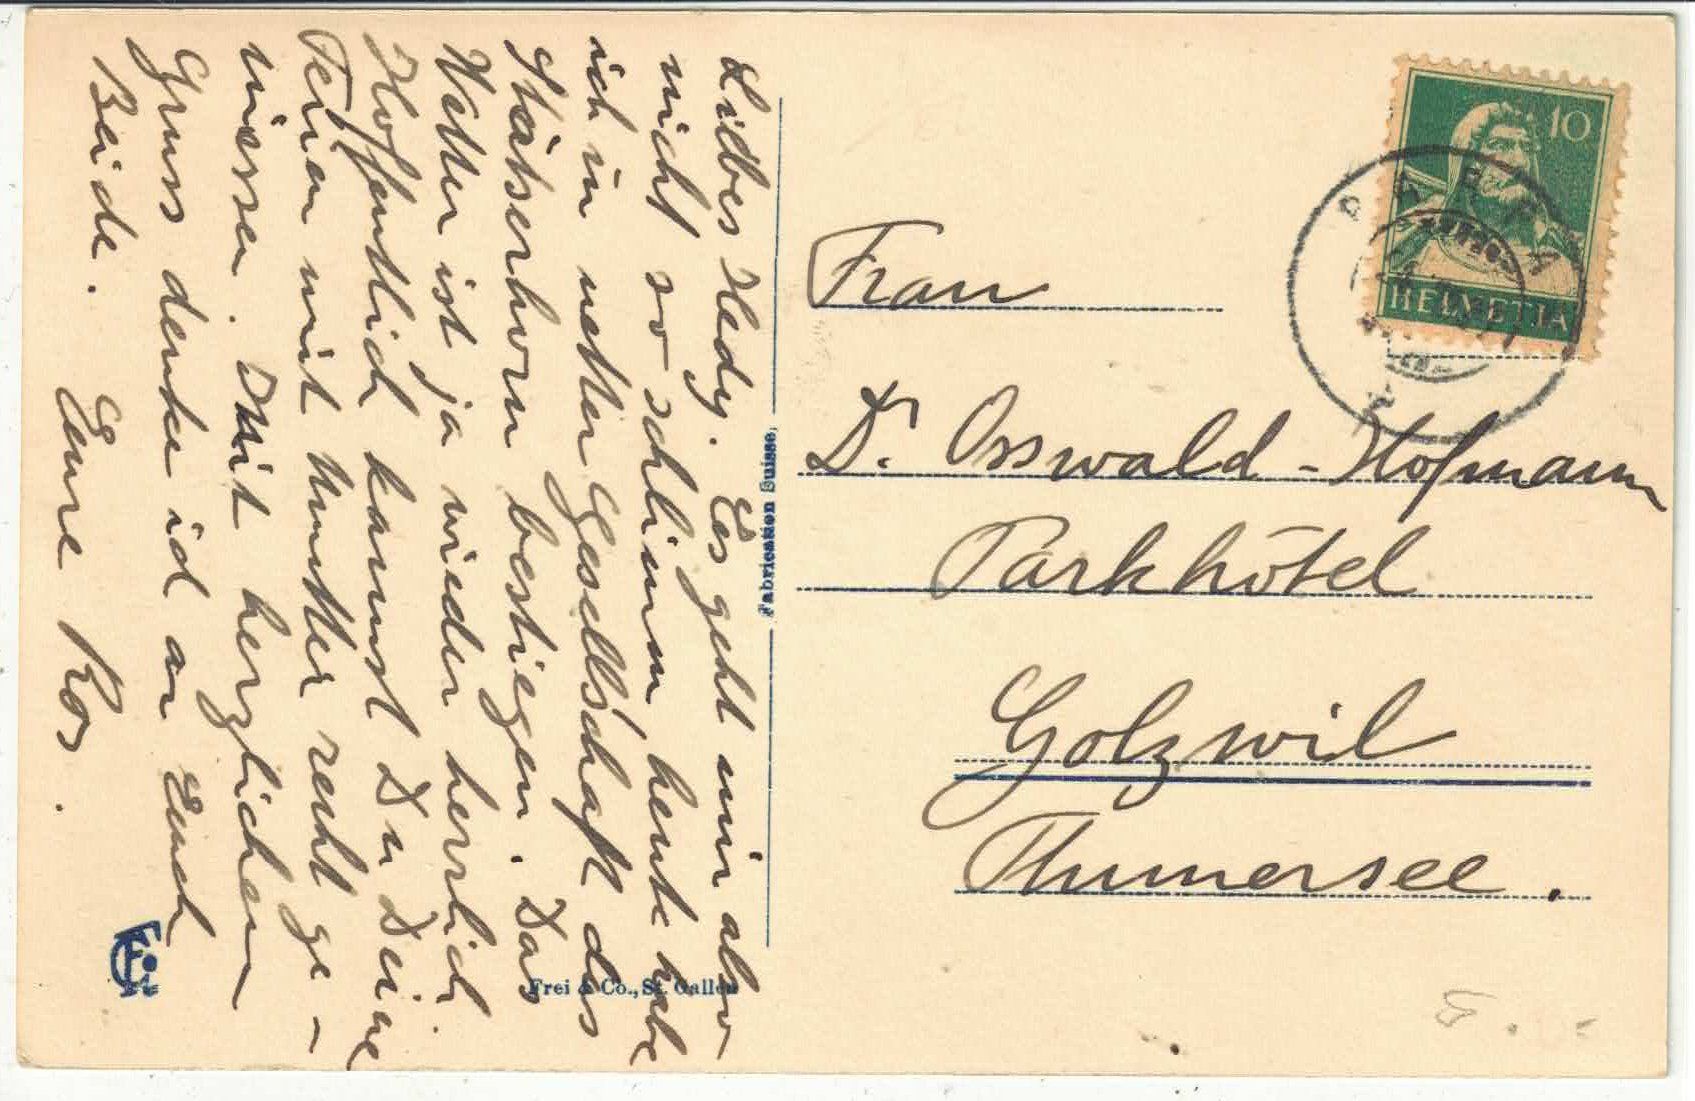 Liebes Hedy. Es geht mir also
nicht so schlimm, heute habe
ich in netter Gesellschaft das
Stätserhorn bestiegen. Das
Wetter ist ja wieder herrlich.
Hoffentlich kannst Du Deine
Ferien mit Mutter recht ge-
niessen. Mit herzlichem
Gruss denke id an Euch
Beide.
Eure Ros.
Fabrication Suisse.
Frei & Co., St. Gallen
10
HELVETIA
Frau
Dr. Osswald-Hofmann
Parkhôtel
Golzwil
Thunersee.